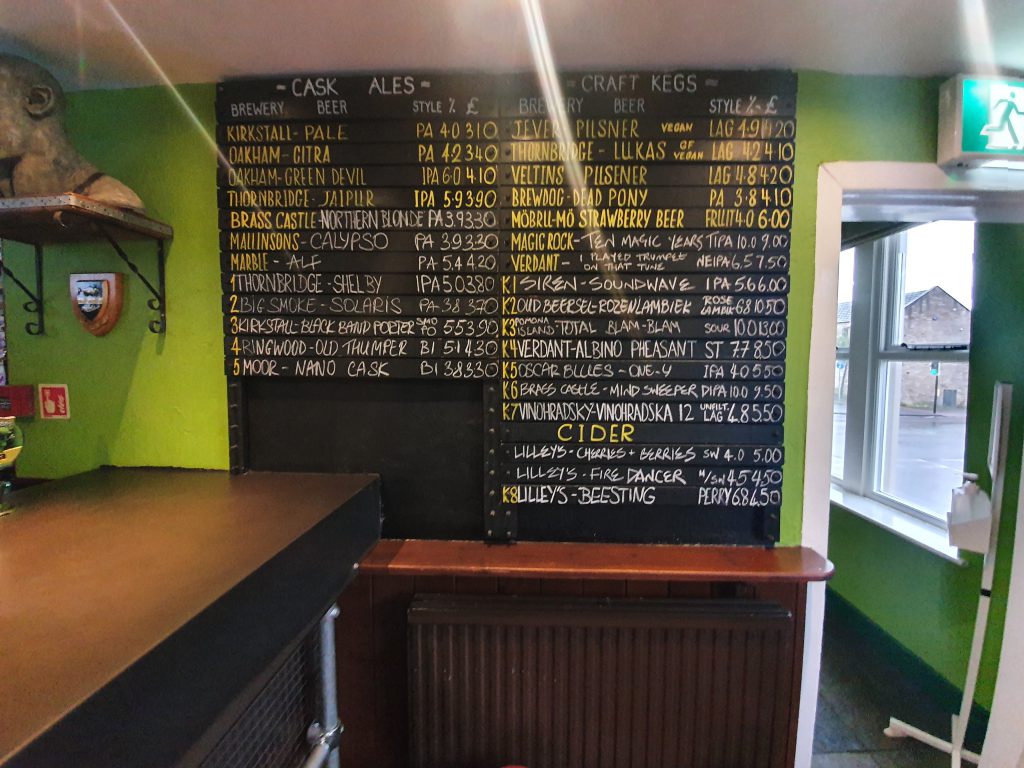 ~ CASK ALES ~
BREWERY BEER STYLE % £
KIRKSTALL - PALE PA 4.0 3.10
OAKHAM - CITRA PA 4.2 3.40
OAKHAM - GREEN DEVIL IPA 6.0 4.10
THORNBRIDGE - JAIPUR IPA 5.9 3.90
BRASS CASTLE - NORTHERN BLONDE PA 3.9 3.30
MALLINSONS - CALYPSO PA 3.9 3.30
MARBLE - ALF PA 5.4 4.20
K1 THORNBRIDGE - SHELBY IPA 5.0 3.80
2 BIG SMOKE - SOLARIS PA 3.8 3.70
3 KIRKSTALL BLACK BAND PORTER 5.5 3.90
4 RINGWOOD - OLD THUMPER BI 5.1 4.30
5 MOOR - NANO CASK BI 3.8 3.30
~ CRAFT KEGS ~
BREWERY BEER STYLE % £
JEVER PILSNER VEGAN LAG 4.9 4.20
THORNBRIDGE - LUKAS GF VEGAN LAG 4.2 4.10
VELTINS PILSENER LAG 4.8 4.20
BREWDOG - DEAD PONY PA 3.8 4.10
MÖBRU-MÖ STRAWBERRY BEER FRUIT 4.0 6.00
MAGIC ROCK - TEN MAGIC YEARS TIPA 10.0 9.00
VERDANT - I PLAYED TRUMPET ON THAT TUNE NEIPA 6.5 7.50
K1 SIREN - SOUNDWAVE IPA 5.6 6.00
K2 OUD BEERSEL - ROZENLAMBIEK ROSE LAMBIK 6.8 10.50
K3 POMONA ISLAND - TOTAL BLAM-BLAM SOUR 10.0 13.00
K4 VERDANT - ALBINO PHEASANT ST 7.7 8.50
K5 OSCAR BLUES - ONE-Y IPA 4.0 5.50
K6 BRASS CASTLE - MIND SWEEPER DIPA 10.0 9.50
K7 VINOHRADSKY - VINOHRADSKA 12 UNFILT. LAG 4.8 5.50
CIDER
LILLEY'S - CHERRIES + BERRIES SW 4.0 5.00
LILLEY'S - FIRE DANCER M/SW 4.5 4.50
K8 LILLEY'S - BEESTING PERRY 6.8 4.50